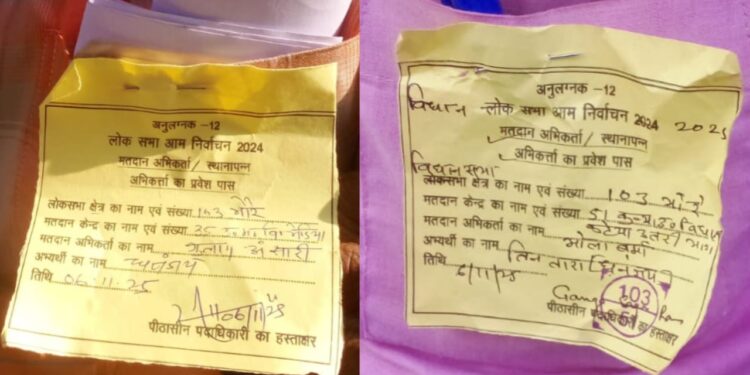 अनुलग्नक -12
लोक सभा आम निर्वाचन 2024
मतदान अभिकर्ता/ स्थानापन्न
अभिकर्त्ता का प्रवेश पास
लोकसभा क्षेत्र का नाम एवं संख्या 103 भोरे
मतदान केन्द्र का नाम एवं संख्या 35
मतदान अभिकर्ता का नाम अंसारी
अभ्यर्थी का नाम
तिथि 06.11.25
06/11/25
पीठासीन पदाधिकारी का हस्ताक्षर
अनुलग्नक -12
विधान लोक सभा आम निर्वाचन 2024 2025
मतदान अभिकर्ता/ स्थानापन्न
अभिकर्त्ता का प्रवेश पास
विधान सभा
लोकसभा क्षेत्र का नाम एवं संख्या 103 भोरे
मतदान केन्द्र का नाम एवं संख्या 51
मतदान अभिकर्ता का नाम
अभ्यर्थी का नाम
तिथि 6/11/25
103
51
पीठासीन पदाधिकारी का हस्ताक्षर